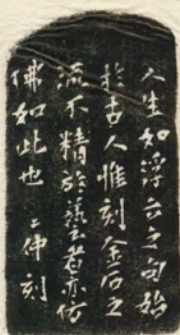 人生如浮云之句始
於古人惟刻金石之
流不精於藝者亦仿
佛如此也 二仲刻